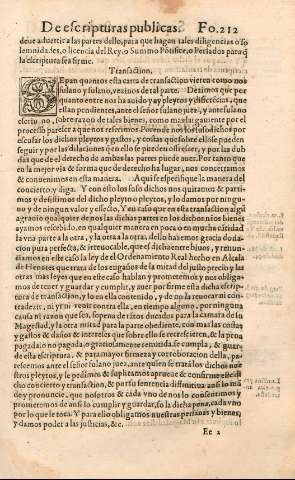 De escripturas publicas. Fo.212
deue aduertir a las partes dello, para que hagan tales diligencias o so
lemnidades, o licencia del Rey, o Summo Pontifice, o Perlados para q̃
la escriptura sea firme.
Transaction.
SEpan quantos esta carta de transaction vieren como nos
fulano y fulano, vezinos de tal parte. Dezimos que por
quanto entre nos ha auido pleytos y differẽcias, que
estan pendientes, ante el señor fulano juez, y ante fulano
escriuano, sobre razon de tales bienes, como mas largamente por el
processo paresce a que nos referimos. Porende nos los susodichos por
escusar los dichos pleytos y gastos, y costas que sobre ello se pueden
seguir y por las dilaciones q̃ en ello se pueden offrescer, y por la dub
da que del derecho de ambas las partes puede auer. Por tanto que
en la mejor via & forma que de derecho ha lugar, nos concertamos
& conuenimos en esta manera. Aqui se especifique la manera del
concierto, y diga. Y con esto los suso dichos nos quitamos & parti-
mos y desistimos del dicho pleyto o pleytos, y lo damos por ningu-
no y de ningun valor y effecto. Y en caso que en esta transaction aya
agrauio qualquiera de nos las dichas partes en los dichos bienes
ayamos rescebido, en qualquier manera en poca o en mucha cãtidad
la vna parte a la otra, y la otra a la otra, dello hazemos gracia & do
nacion pura perfecta, & irreuocable, que es dicha entre biuos, y renun-
ciamos en este caso la ley del Ordenamiento Real hecho en Alcala
de Henares que trata de los engaños de la mitad del justo precio y las
otras mas leyes que en este caso hablan y prometemos y nos obliga-
mos de tener y guardar y cumplir, y auer por firme esta dicha escrip
tura de transaction, y lo en ella contenido, y de no la reuocar ni con
tradezir, ni yr ni venir contra ella, en tiempo alguno, por ninguna
causa ni razon que sea, so pena de tãtos ducados para la camara de su
Magestad, y la otra mitad para la parte obediente, con mas las costas
y gastos & daños & interesses que sobre ello se recrescieren, & la pena
pagada o no pagada, o graciosamente remitida, se cumpla, & guar-
de esta escriptura. & para mayor firmeza y corroboracion della, pa-
rescemos ante el señor fulano juez, ante quien se tratã los dichos nue
stros pleytos, y le pedimos & suplicamos aprueue & confirme este di
cho concierto y transaction, & por su sentencia diffinitiua assi lo mã
de y pronuncie, que nosotros & cada vno de nos lo consentimos y
prometemos de assi lo cumplir y guardar, so la dicha pena, cada vno
por lo que le toca. Y para ello obligamos nuestras personas y bienes,
y damos poder a las justicias, &c.
Ee 2